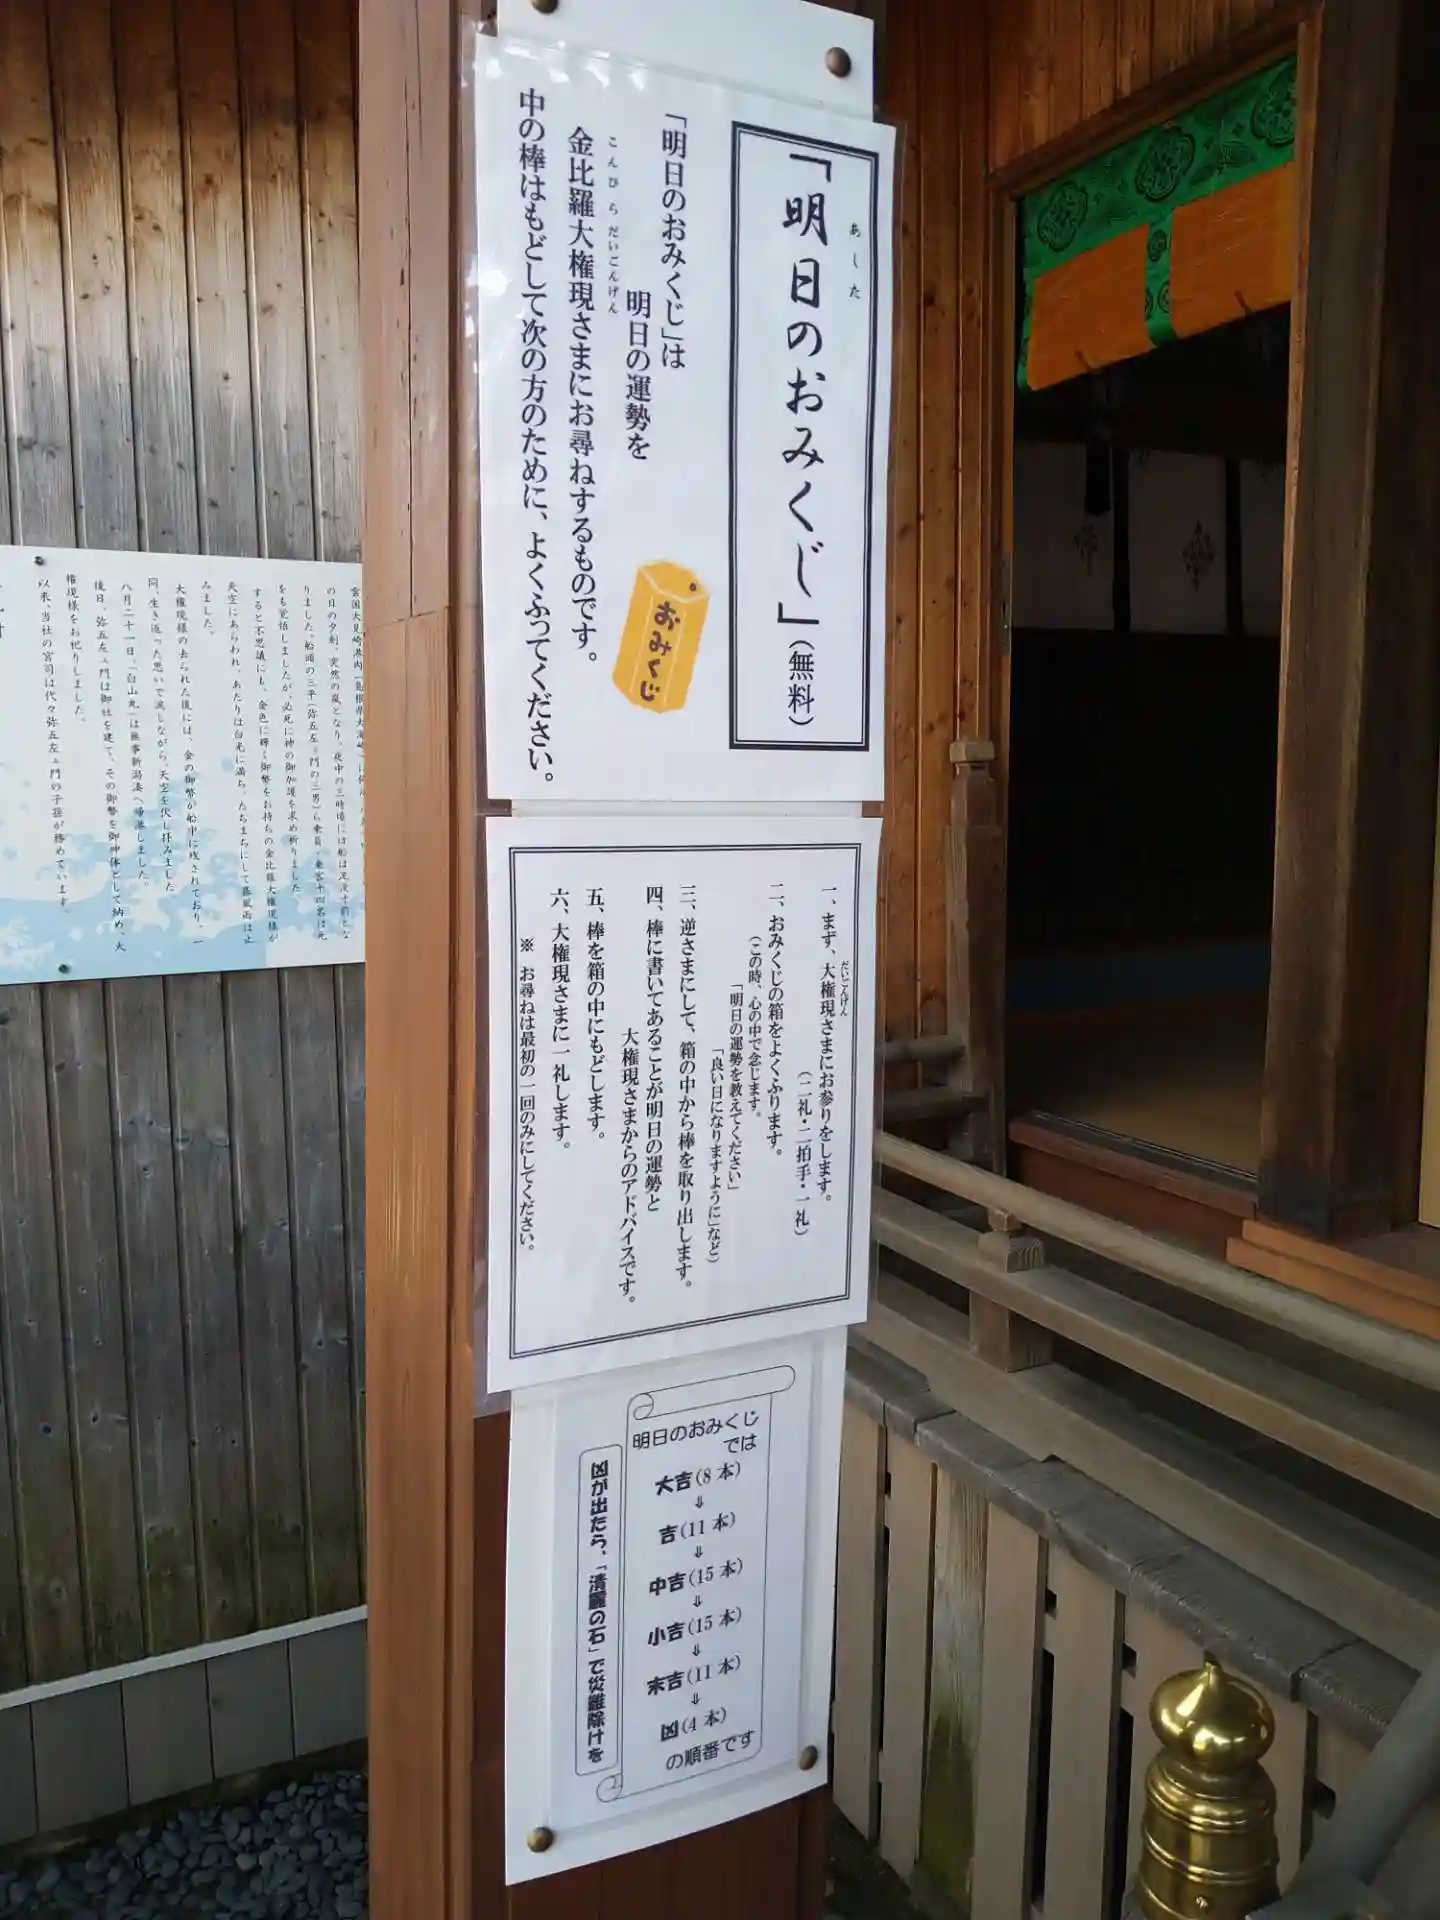 「明日のおみくじ」(無料)
あした
「明日のおみくじ」は
明日の運勢を
こんぴらだいごんげん
金比羅大権現さまにお尋ねするものです。
中の棒はもどして次の方のために、よくふってください。
おみくじ
だいごんげん
一、まず、大権現さまにお参りをします。
(二礼・二拍手・一礼)
二、おみくじの箱をよくふります。
(この時、心の中で念じます。
「明日の運勢を教えてください」
「良い日になりますように」など)
三、逆さまにして、箱の中から棒を取り出します。
四、棒に書いてあることが明日の運勢と
大権現さまからのアドバイスです。
五、棒を箱の中にもどします。
六、大権現さまに一礼します。
※ お尋ねは最初の一回のみにしてください。
明日のおみくじ
では
大吉(8本)
⇓
吉(11本)
⇓
中吉(15本)
⇓
小吉(15本)
⇓
末吉(11本)
⇓
凶(4本)
の順番です
凶が出たら、「清麗の石」で災難除けを
の日の夕刻、突然の嵐となり、夜中の三時頃には船は沈没寸前とな
りました。船頭の三平(弥五左ヱ門の三男)ら乗員、乗客十四名は死
をも覚悟しましたが、必死に神の御加護を求め祈りました。
すると不思議にも、金色に輝く御幣をお持ちの金比羅大権現様が
天空にあらわれ、あたりは白光に満ち、たちまちにして暴風雨は止
みました。
大権現様の去られた後には、金の御幣が船中に残されており、一
同、生き返った思いで涙しながら、天空を伏し拝みました。
八月二十一日、「白山丸」は無事新潟湊へ帰港しました。
後日、弥五左ヱ門は御社を建て、その御幣を御神体として納め、大
権現様をお祀りしました。
以来、当社の宮司は代々弥五左ヱ門の子孫が務めています。